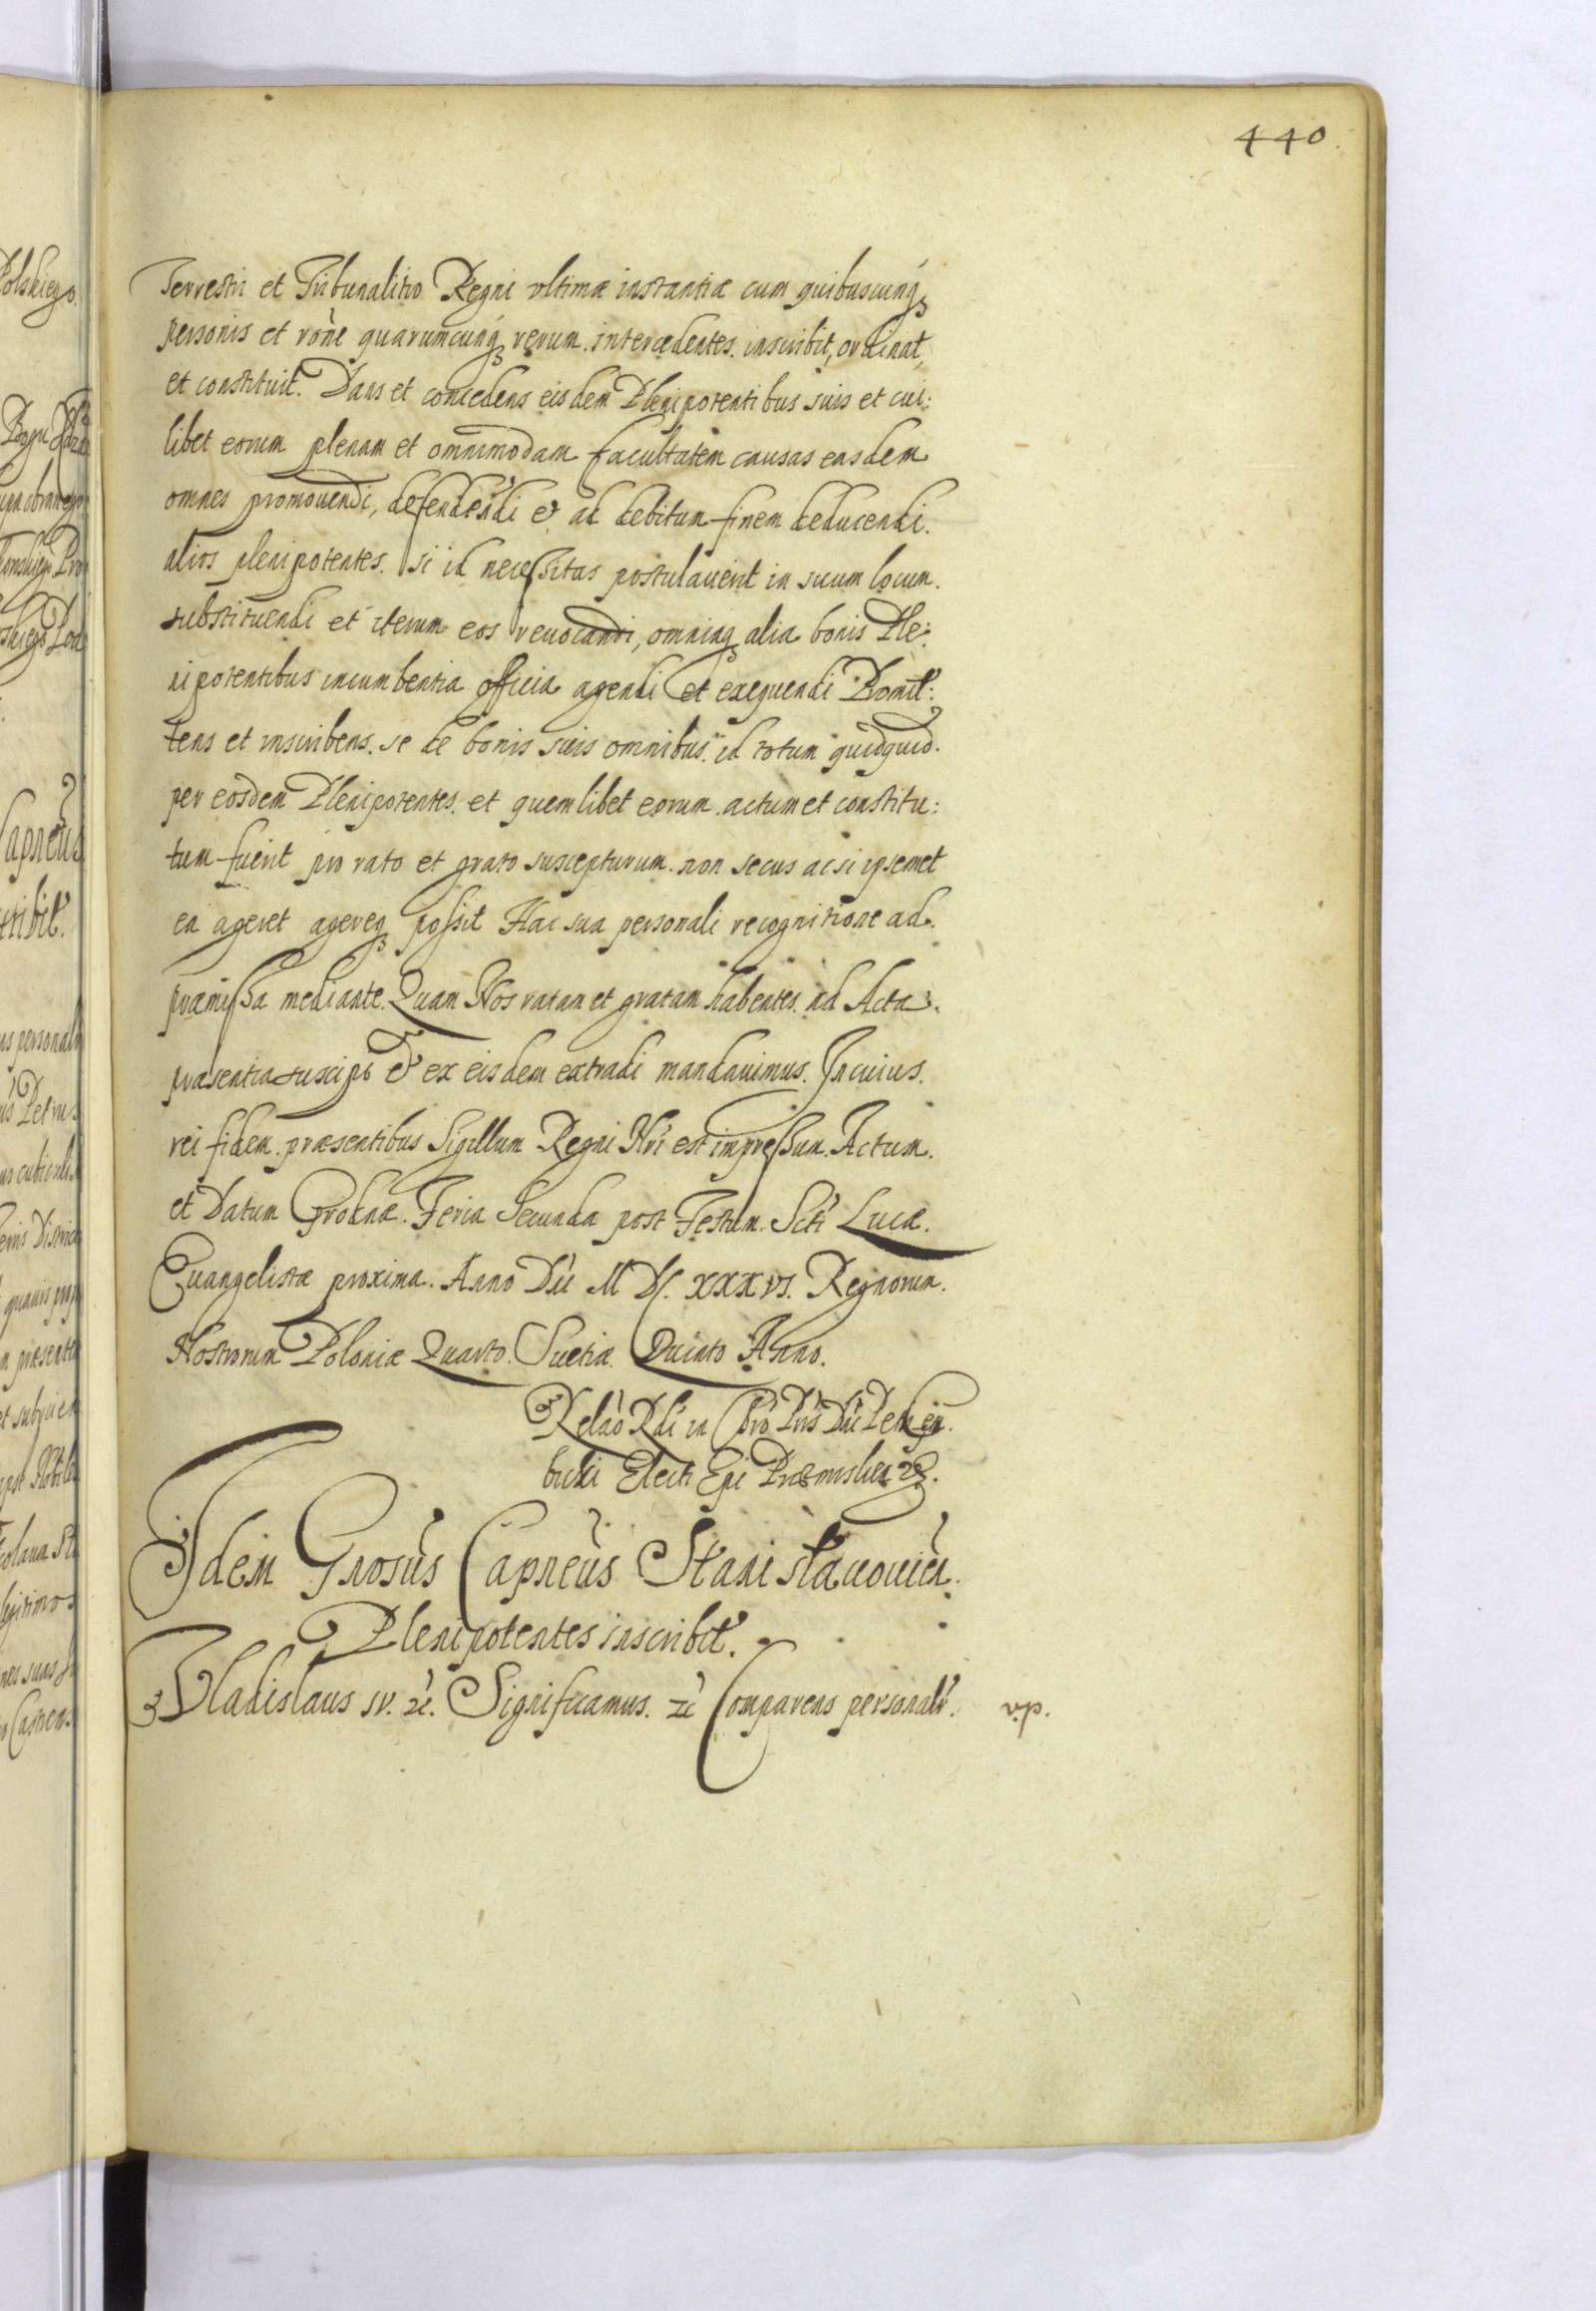 440.
Terrestri et Tribunalitio Regni vltimæ instantiæ cum quibuscunq3
personis et rõne quarumcunq3 rerum. intercedentes. inscribit, ordinat,
et constituit. Dans et concedens eisdem Plenipotentibus suis et cui:
libet eorum plenam et omnimodam facultatem causas easdem
omnes promouendi, defendendi et ad debitum finem deducendi.
alios plenipotentes. si id necessitas postulauerit in suum locum.
substituendi et iterum eos reuocandi, omniaq3 alia bonis Ple:
nipotentibus incumbentia officia agendi et exequendi Promit:
tens et inscribens. se de bonis suis omnibus. id totum quidquid.
per eosdem Plenipotentes. et quemlibet eorum. actum et constitu:
tum fuerit pro rato et grato suscepturum. non secus ac si ipsemet
ea ageret agereq3 possit Hac sua personali recognitione ad.
præmissa mediante. Quam Nos ratam et gratam habentes. ad Acta.
præsentia suscipi et ex eisdem extradi mandauimus. In cuius.
rei fidem. præsentibus Sigillum Regni Nri est impressum. Actum.
et Datum Grodnæ. Feria Secunda post Festum. Scti Lucæ.
Euangelistæ proxima. Anno Dni M DC. XXXVI. Regnorum.
Nostrorum Poloniæ Quarto. Suetiæ Quinto Anno.
Relao Rdi in Chro Pris Dni Petri Gem
bicki Electi Epi Præmislien &.
Idem Gnosus Capneus Stanislauouien.
Plenipotentes inscribit.
Vladislaus IV. &c. Significamus. &c Comparens personalr. v.p.
Polskiego.
Capneus
scribit.
us personalr
us Petrus